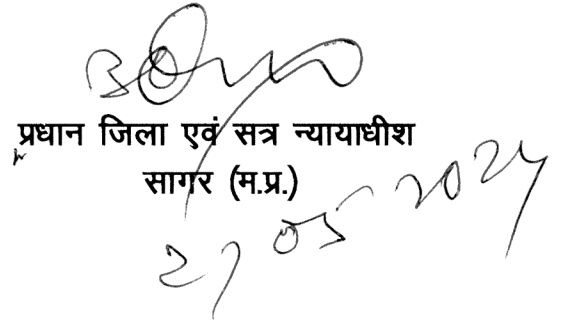 प्रधान जिला एवं सत्र न्यायाधीश
सागर (म.प्र.)
27 05 2024